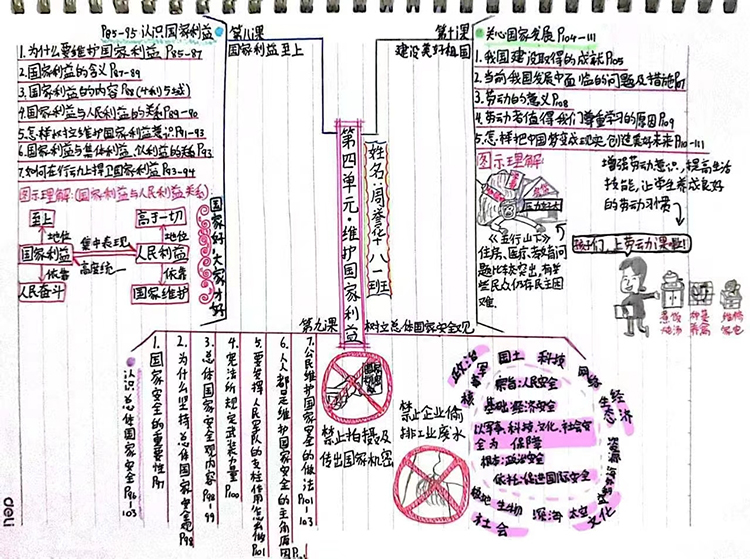 P85-95 认识国家利益
第八课
国家利益至上
1.为什么要维护国家利益 P85-87
2.国家利益的含义 P87-89
3.国家利益的内容 P88
4.国家利益与人民利益的关系 P89-90
5.怎样树立维护国家利益意识 P91-93
6.国家利益与集体利益、个人利益的关系 P93
7.如何在行动上捍卫国家利益 P93-94
图示理解:(国家利益与人民利益关系)
至上
高于一切
地位
地位
国家利益
集中表现
人民利益
高度统一
依靠
依靠
人民奋斗
国家维护
国家好,大家才好
第四单元·维护国家利益
姓名:周誉
八一班
第十课
建设美好祖国
关心国家发展 P104-111
1.我国建设取得的成就 P105
2.当前我国发展中面临的问题及措施 P107
3.劳动的意义 P108
4.劳动者值得我们尊重学习的原因 P109
5.怎样把中国梦变成现实,创造美好未来 P110-111
图示理解:
压力好大
《五行山下》
住房、医疗、教育问题
问题比较突出,有些
民众仍存在民主困难
增强劳动意识,提高生活
技能,让学生养成良好
的劳动习惯
孩子们,上劳动课啦!
煮饭
炖汤
种菜
养禽
维修
家电
第九课
树立总体国家安全观
认识总体国家安全 P96-103
1.国家安全的重要性 P97
2.为什么坚持总体国家安全观 P98
3.总体国家安全观内容 P98-99
4.宪法所规定武装力量 P100
5.要发挥人民军队的支柱作用怎么做 P101
6.人人都是维护国家安全的主角原因
7.公民维护国家安全的做法 P101-103
禁止拍摄及
传出国家机密
禁止企业偷
排工业废水
政治
军事
国土
科技
网络
生态
经济
资源
核
文化
太空
深海
生物
极地
社会
宗旨:人民安全
基础:经济安全
以军事、科技、文化、社会安
全为 保障
根本:政治安全
依托:促进国际安全
deli